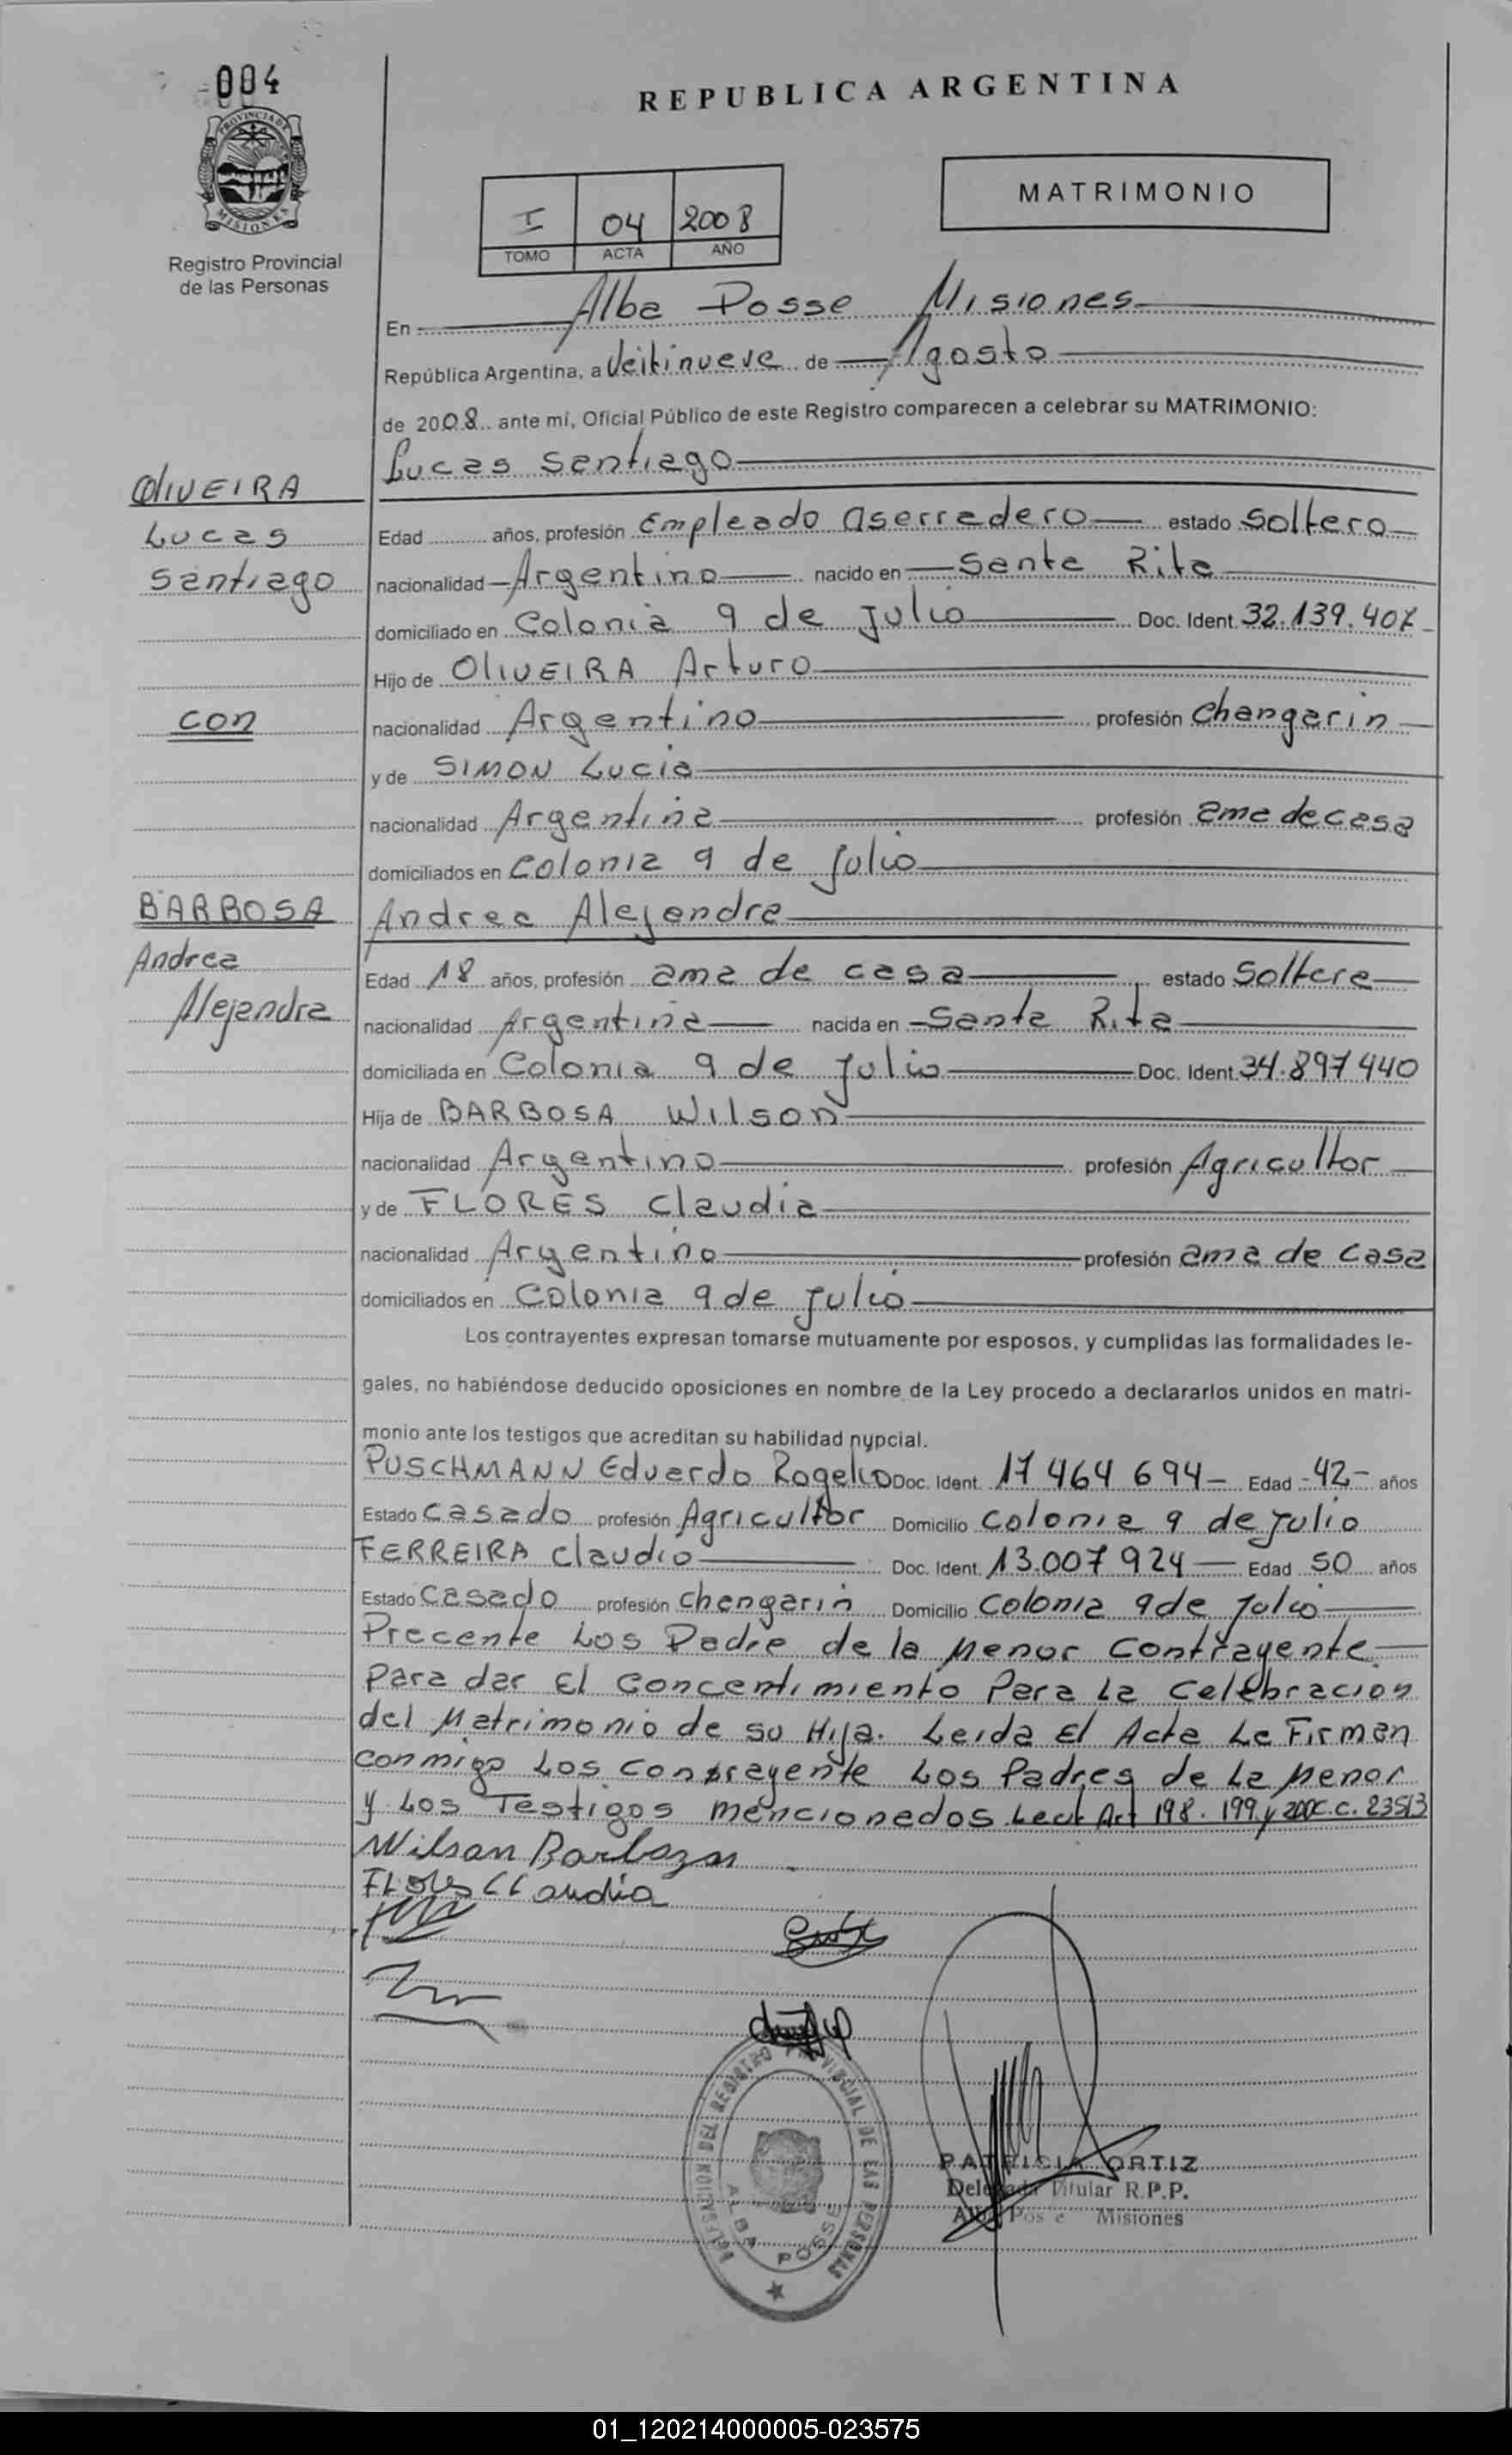 004
PROVINCIA DE
MISIONES
Registro Provincial
de las Personas
REPUBLICA ARGENTINA
MATRIMONIO
I 04 2008
TOMO ACTA AÑO
En Alba Posse Misiones
República Argentina, a Veitinueve de Agosto
de 2008 ante mí, Oficial Público de este Registro comparecen a celebrar su MATRIMONIO:
Lucas Santiago
OLIVEIRA
Lucas
Santiago
Edad años, profesión Empleado aserradero estado Soltero
nacionalidad Argentino nacido en Santa Rita
domiciliado en Colonia 9 de Julio Doc. Ident. 32.139.407
Hijo de OLIVEIRA Arturo
con
nacionalidad Argentino profesión Changarin
y de SIMON Lucia
nacionalidad Argentina profesión ama de casa
domiciliados en Colonia 9 de Julio
BARBOSA
Andrea
Alejandra
Andrea Alejandra
Edad 18 años, profesión ama de casa estado Soltera
nacionalidad Argentina nacida en Santa Rita
domiciliada en Colonia 9 de Julio Doc. Ident. 34.897440
Hija de BARBOSA Wilson
nacionalidad Argentino profesión Agricultor
y de FLORES Claudia
nacionalidad Argentino profesión ama de casa
domiciliados en Colonia 9 de Julio
Los contrayentes expresan tomarse mutuamente por esposos, y cumplidas las formalidades le-
gales, no habiéndose deducido oposiciones en nombre de la Ley procedo a declararlos unidos en matri-
monio ante los testigos que acreditan su habilidad nupcial.
PUSCHMANN Eduardo Rogelio Doc. Ident. 17 464 694 Edad 42 años
Estado Casado profesión Agricultor Domicilio Colonia 9 de Julio
FERREIRA Claudio Doc. Ident. 13.007 924 Edad 50 años
Estado Casado profesión Changarin Domicilio Colonia 9 de Julio
Precente Los Padre de la Menor Contrayente
Para dar El Concentimiento Para La Celebracion
del Matrimonio de su Hija. Leida El Acta La Firman
conmigo Los Contrayente Los Padres de La Menor
y Los Testigos mencionados Lect Art 198. 199 y 200 C.C. 23513
Wilson Barboza
Flores Claudia
DELEGACION DEL REGISTRO PROVINCIAL DE LAS PERSONAS
ALBA POSSE
PATRICIA ORTIZ
Delegada Titular R.P.P.
Alba Posse Misiones
01_120214000005-023575